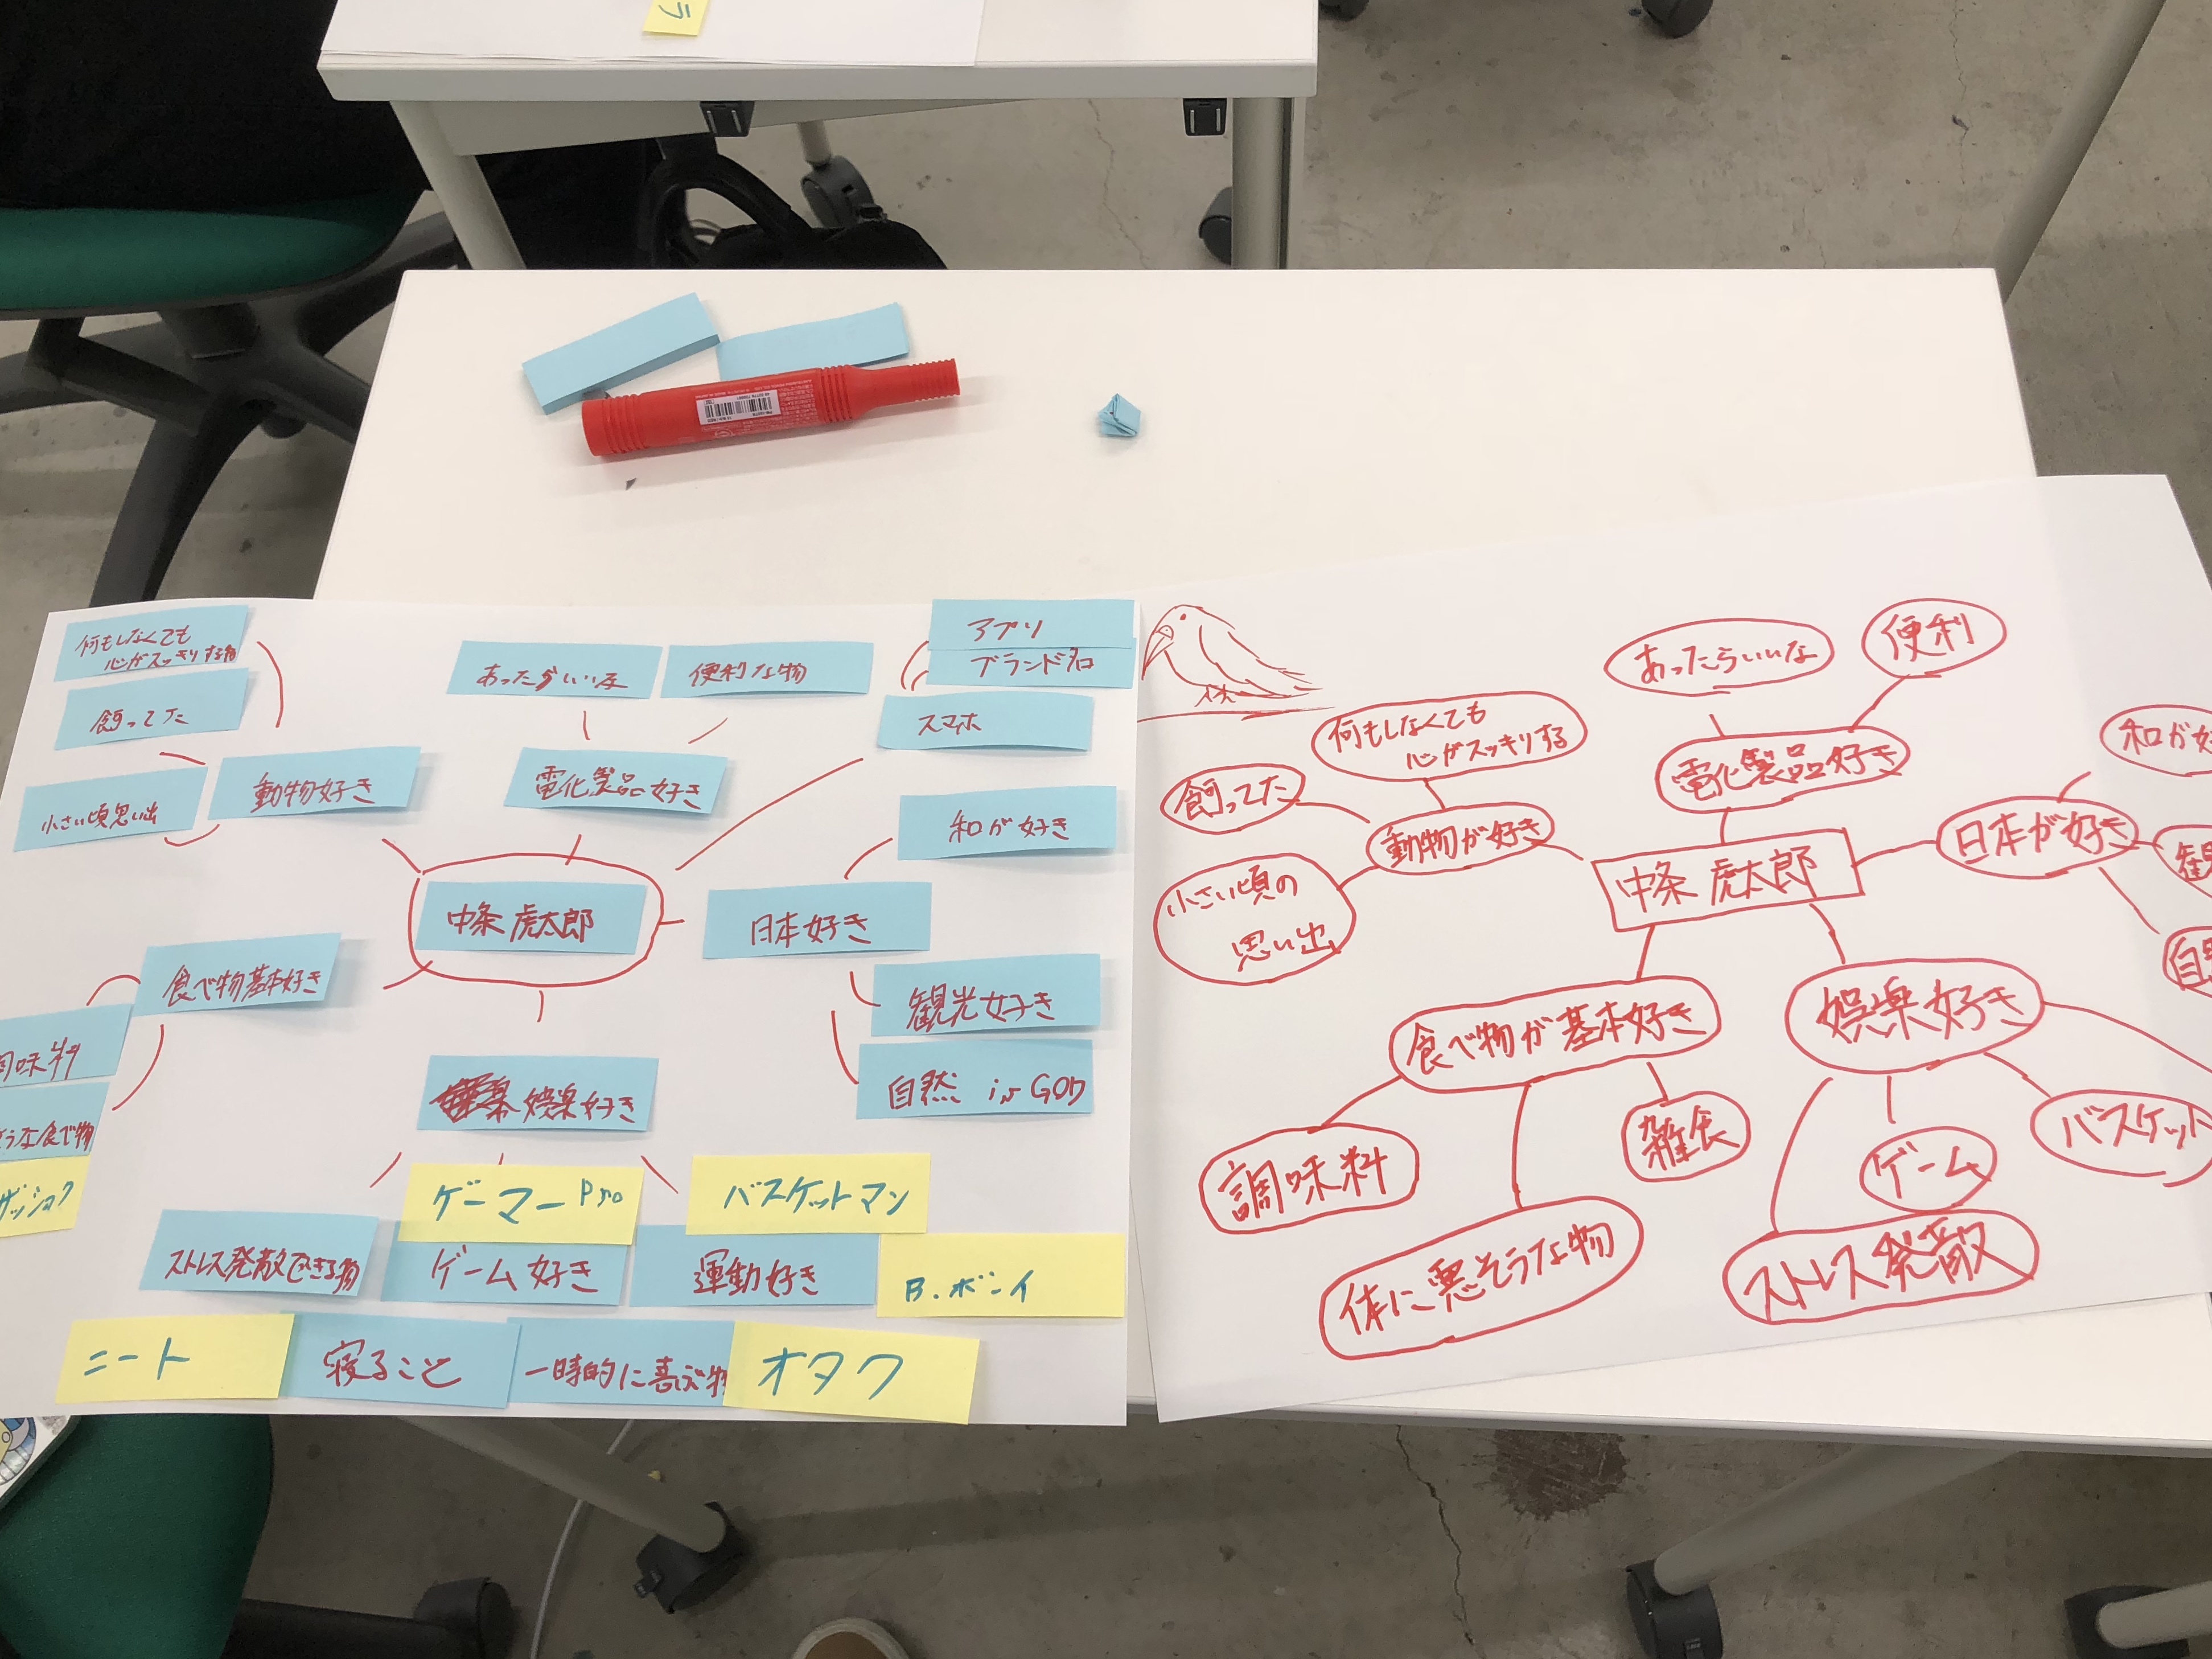 ラ
何もしなくても
心がスッキリする物
飼ってた
小さい頃思い出
動物好き
あったらいいな
便利な物
電化製品好き
アプリ
ブランド名
スマホ
和が好き
中条 虎太郎
日本好き
観光好き
自然 is GOD
食べ物基本好き
味料
うな食べ物
ザッショク
娯楽好き
ゲーマーPro
バスケットマン
ストレス発散できる物
ゲーム好き
運動好き
B.ボーイ
ニート
寝ること
一時的に喜ぶ物
オタク
あったらいいな
便利
何もしなくても
心がスッキリする
飼ってた
電化製品好き
和が好
動物が好き
日本が好き
観
小さい頃の
思い出
中条 虎太郎
自然
食べ物が基本好き
娯楽好き
調味料
雑食
ゲーム
バスケット
体に悪そうな物
ストレス発散